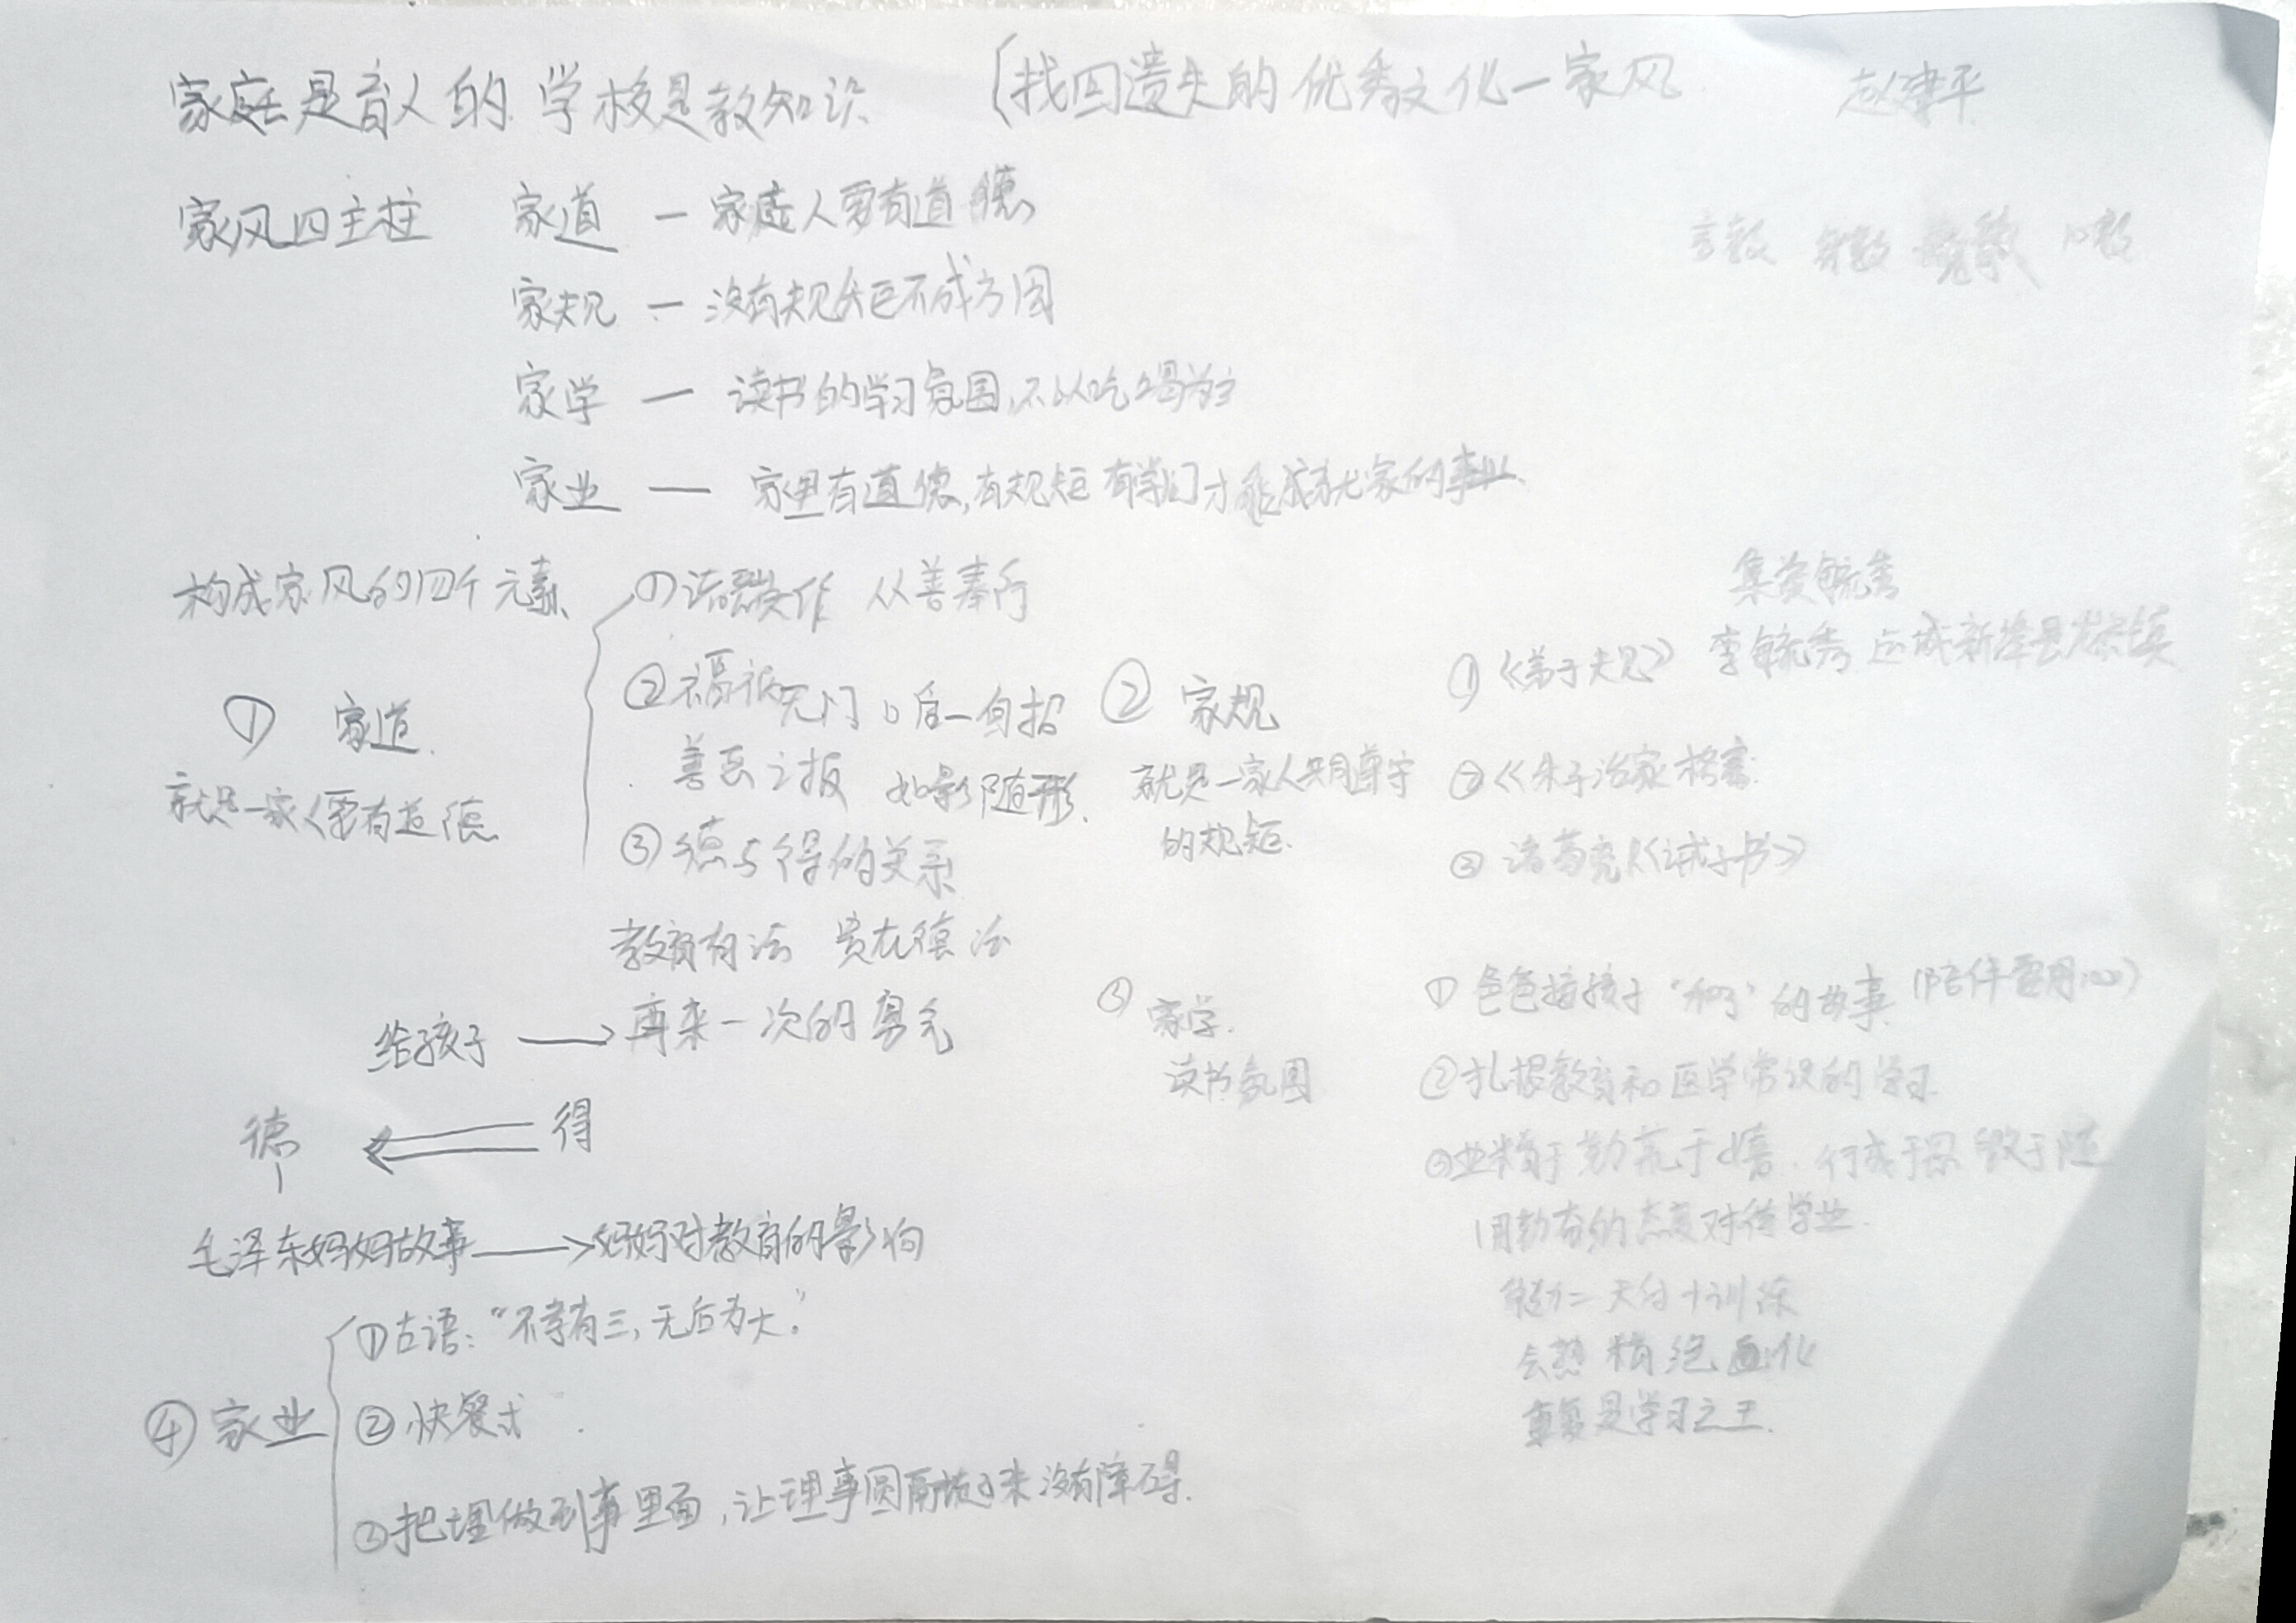 家庭是育人的 学校是教知识 (找回遗失的优秀文化一家风 赵建平
家风四主柱 家道 — 家庭人要有道德
言教 身教 境教 心教
家规 — 没有规矩不成方圆
家学 — 读书的学习氛围,不以吃喝为主
家业 — 家里有道德,有规矩 有学问才能成就家的事业
构成家风的四个元素
① 家道
就是一家人要有道德
①诸恶莫作 从善奉行
②福祸无门 自招
善恶之报 如影随形.
③德与得的关系
教育有法 贵在得法
给孩子 → 再来一次的勇气
德 ⇐ 得
毛泽东妈妈故事 → 妈妈对教育的影响
② 家规
就是一家人共同遵守
的规矩.
集贤毓秀
①《弟子规》 李毓秀 运城新绛县
②《朱子治家格言
③ 诸葛亮《诫子书》
③ 家学.
读书氛围
① 爸爸接孩子 的故事 (陪伴要用心)
②扎根教育和医学常识的学习
③业精于勤荒于嬉. 行成于思毁于随
用勤奋的态度对待学业.
能力=天分+训练
会熟 精 绝 化
重复是学习之王.
④ 家业
①古语:“不孝有三,无后为大。”
②快餐式
③把理做到事里面,让理事圆融起来没有障碍.